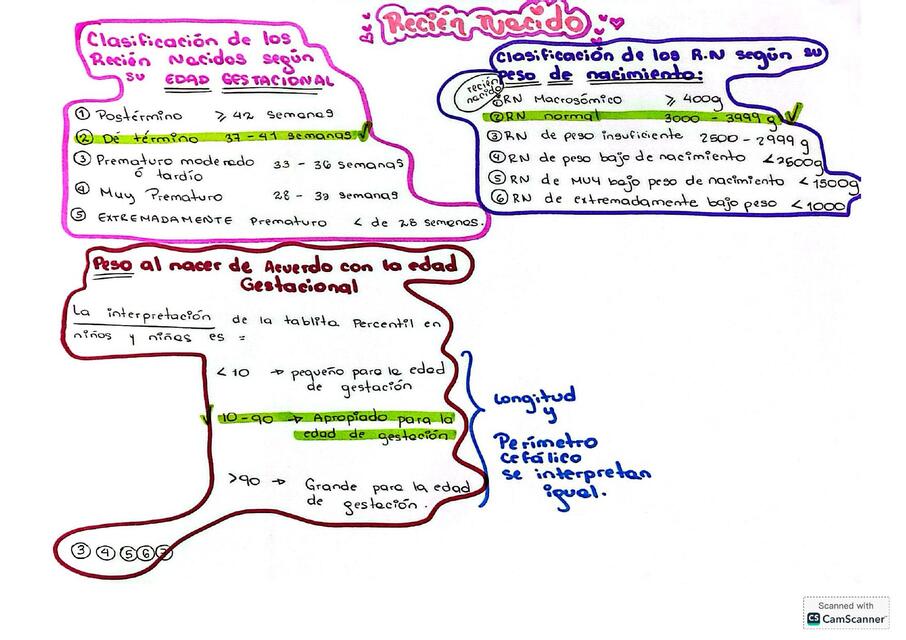 Recién Nacido
Clasificación de los
Recién Nacidos según
su EDAD GESTACIONAL
① Postérmino ≥ 42 semanas
② De término 37 - 41 semanas ✓
③ Prematuro moderado
ó tardío 33 - 36 semanas
④ Muy Prematuro 28 - 32 semanas
⑤ EXTREMADAMENTE Prematuro < de 28 semanas.
Clasificación de los R.N según su
peso de nacimiento:
recién
nacido
① RN Macrosómico ≥ 400g
② RN normal 3000 - 3999 g ✓
③ RN de peso insuficiente 2500 - 2999 g
④ RN de peso bajo de nacimiento < 2500g
⑤ RN de MUY bajo peso de nacimiento < 1500g
⑥ RN de extremadamente bajo peso < 1000
Peso al nacer de Acuerdo con la edad
Gestacional
La interpretación de la tablita Percentil en
niños y niñas es =
< 10 → pequeño para la edad
de gestación
✓ 10 - 90 → Apropiado para la
edad de gestación
>90 → Grande para la edad
de gestación.
Longitud
y
Perímetro
cefálico
se interpretan
igual.
③ ④ ⑤ ⑥ ⑦
Scanned with
CS CamScanner